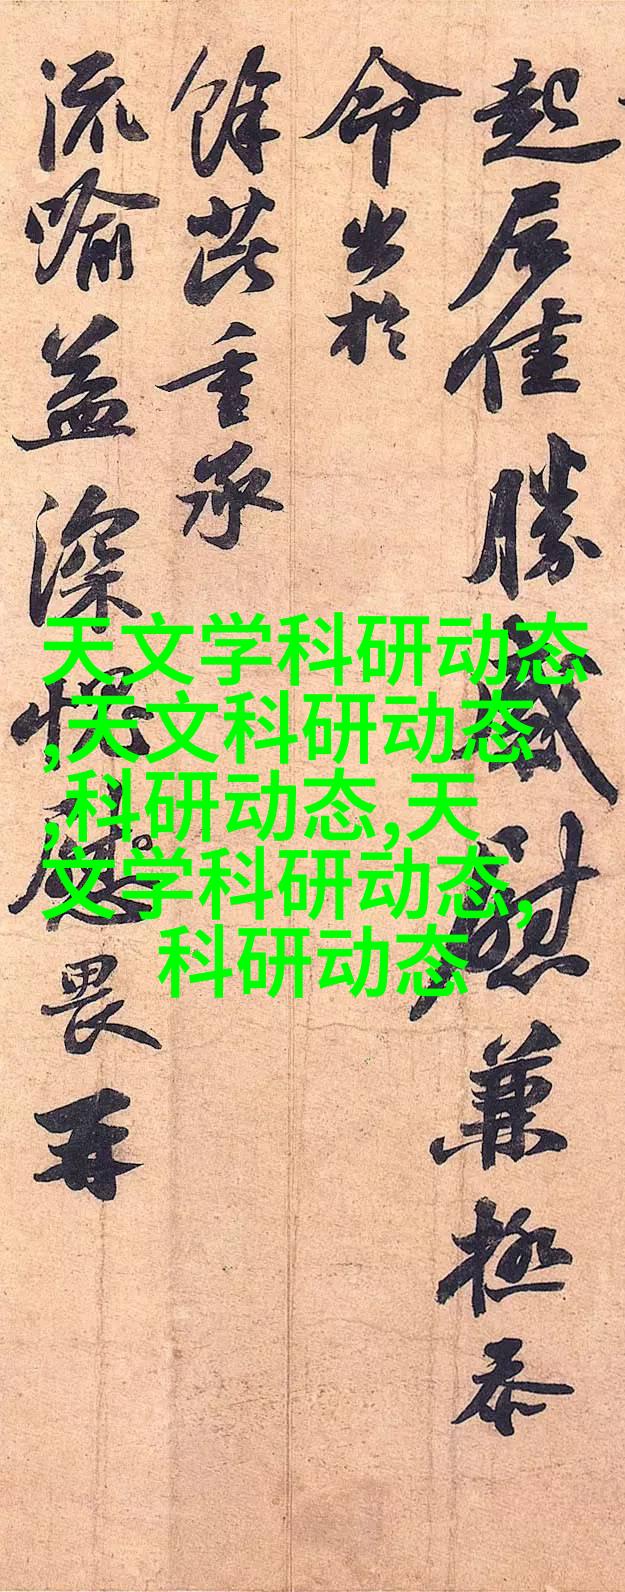 起居佳勝感慰兼極忝
命出於
餘芘重承
流喻益深愧慰畏再
天文学科研动态
,天文科研动态
,科研动态,天
文学科研动态,
科研动态